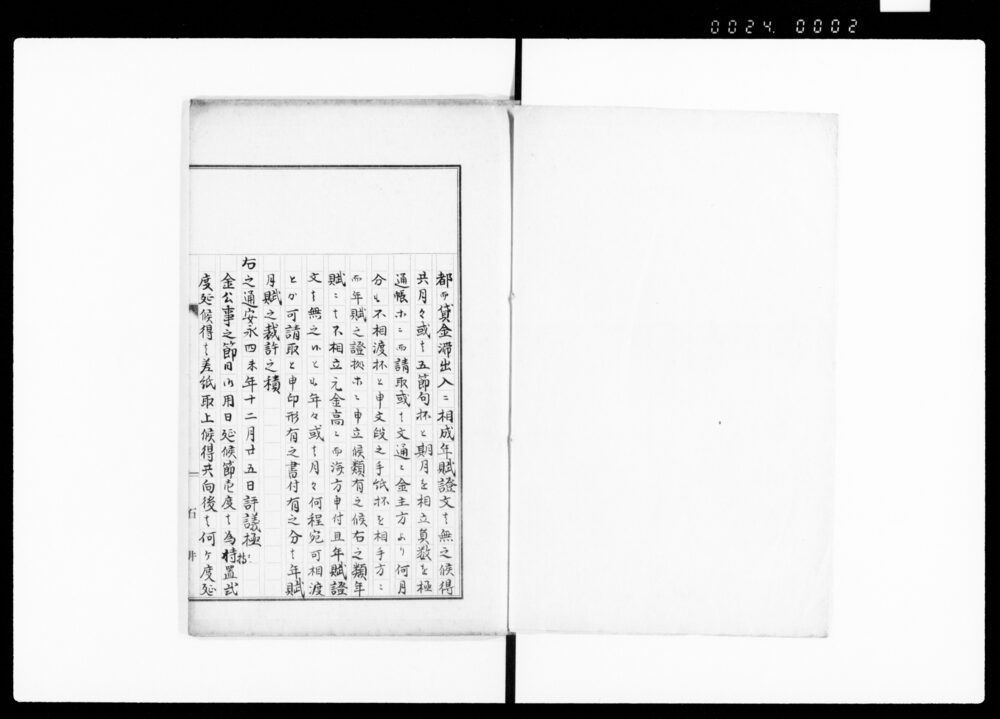 0024. 0002
都而貸金滞出入ニ相成年賦證文ハ無之候得
共月々或ハ五節句抔と期月を相立員数を極
通帳ホニ而請取或ハ文通ニ金主方より何月
分も不相渡抔と申文段之手紙抔を相手方ニ
而年賦之證拠ホニ申立候類有之候右之類年
賦ニハ不相立元金高ニ而済方申付且年賦證
文ハ無之候とも年々或ハ月々何程宛可相渡
とか可請取と申印形有之書付有之分ハ年賦
月賦之裁許之積
右之通安永四未年十二月廿五日評議極
金公事之節日切用日延候節壱度ハ為持置弐
度延候得ハ差紙取上候得共向後ハ何ヶ度延
石井